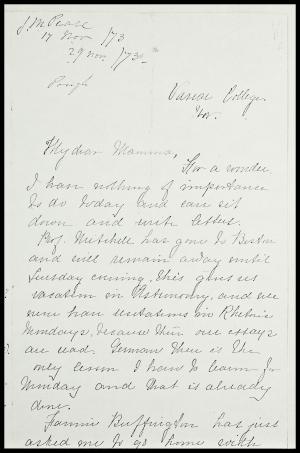 J. M. Pease
17 Nov /73
29 Nov. /73.
Pough
Vassar College
Nov.
My dear Mamma,
For a wonder
I have nothing of importance
to do today and can sit
down and write letters.
Prof. Mitchell has gone to Boston
and will remain away until
Tuesday evening. This gives us
vacation in Astronomy, and we
never have recitations in Rhetoric
Mondays, because then our essays
are read. German then is the
only lesson I have to learn for
Monday and that is already
done.
Fannie Buffington has just
asked me to go home with